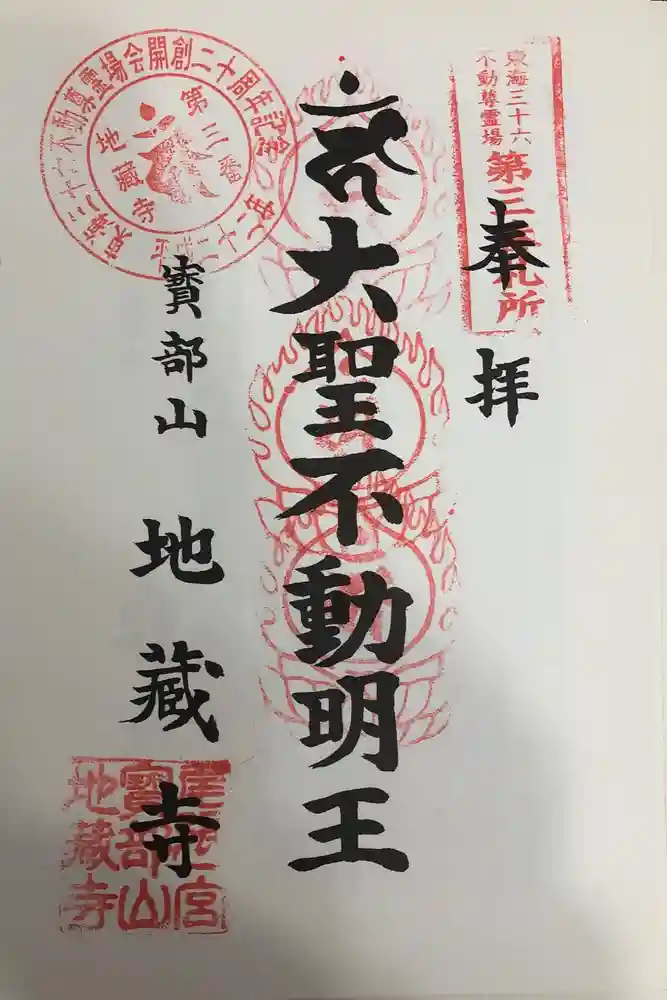 東海三十六
不動尊霊場
第三番札所
奉拝
大聖不動明王
寳部山
地蔵寺
不動尊霊場会開創二十周年記念
第三番
地蔵寺
寳部山
地蔵寺